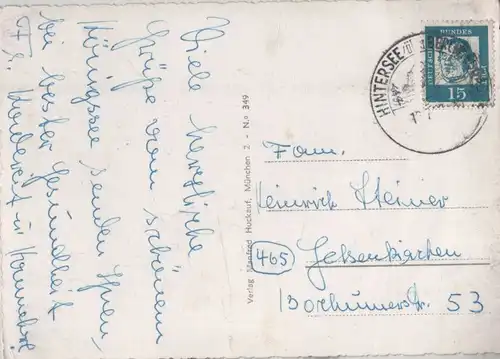 Viele herzliche
Grüße vom schönen
Königssee senden Ihnen
bei bester Gesundheit
Fr.
Verlag Manfred Huckauf, München 2 - N.º 349
HINTERSEE
DEUTSCHE BUNDESPOST
15
Fam.
Heinrich Steiner
(465) Gelsenkirchen
Bochumerstr. 53